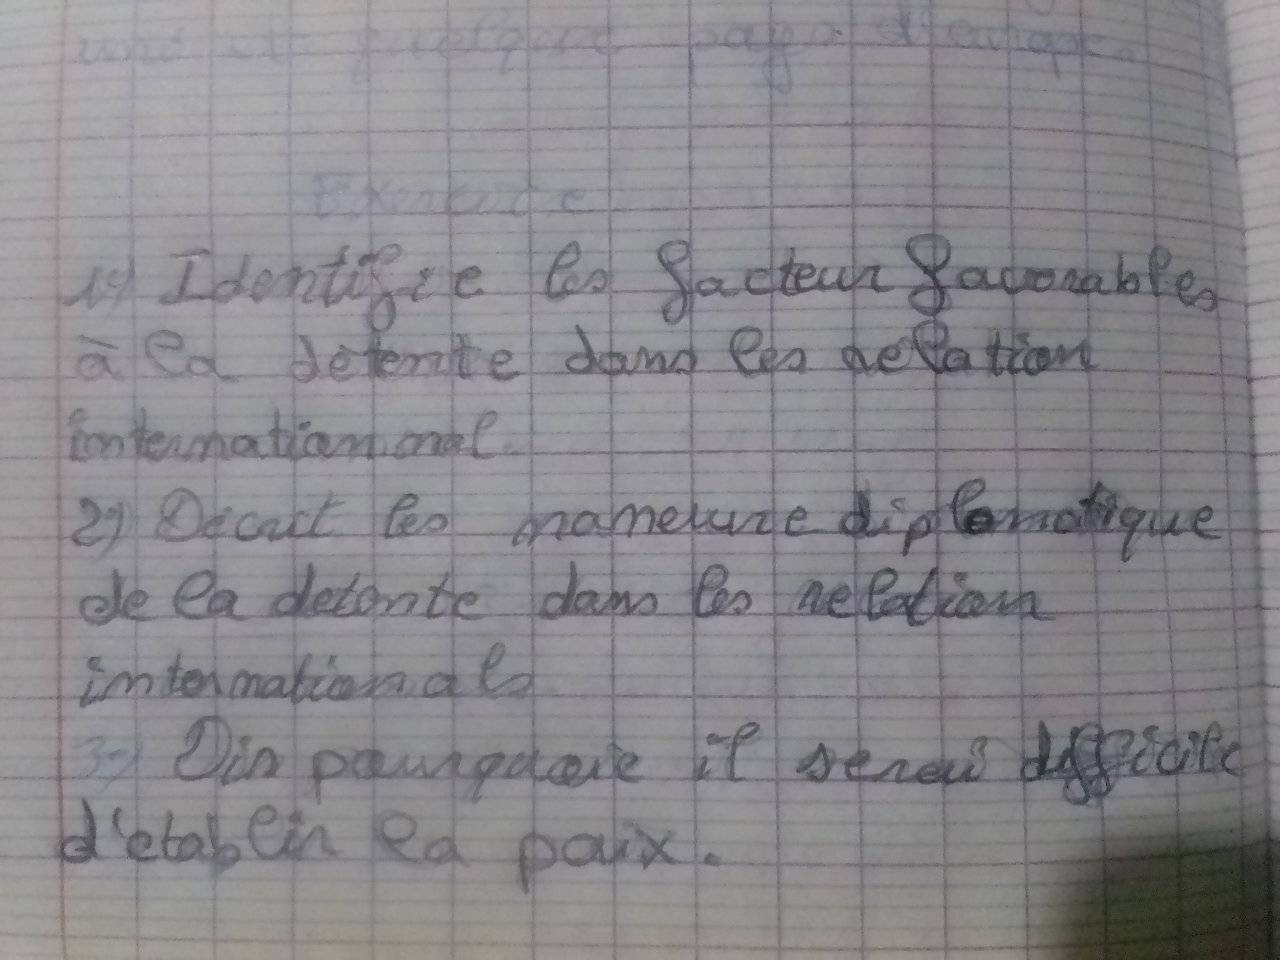 quelque pays d'europe.
Exercice
1°) Identifie les facteur favorables
à la détente dans les relation
internationnal
2°) Décrit les manœuvre diplomatique
de la detente dans les relation
internationals
3°) Dis pourquoie il serai difficile
d'établir la paix.